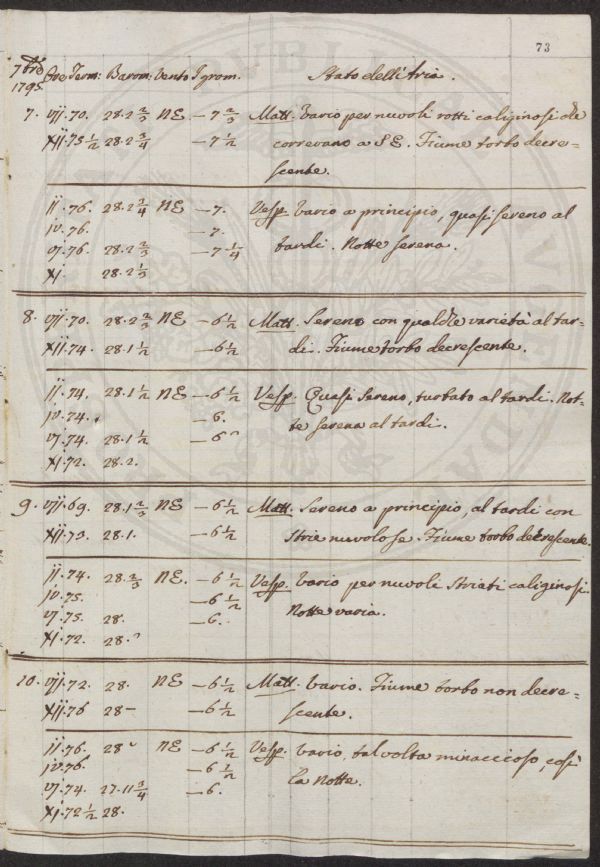 73
7bre 1795. Ore Term: Barom: Vento Igrom. Stato dell'Aria.
7. VII. 70. 28.2 2/3 NE — 7 2/3 Matt. Vario per nuvoli rotti caliginosi che
XII. 75 1/2 28.2 3/4 — 7 1/2 correvano a SE. Fiume torbo decre=
scente.
II. 76. 28.2 3/4 NE — 7. Vesp. Vario a principio, quasi sereno al
IV. 76. — 7.
VI. 76. 28.2 2/3 — 7 1/4 tardi. Notte serena.
XI. 28.2 1/3
8. VII. 70. 28.2 2/3 NE — 6 1/2 Matt. Sereno con qualche varietà al tar=
XII. 74. 28.1 1/2 — 6 1/2 di. Fiume torbo decrescente.
II. 74. 28.1 1/2 NE — 6 1/2 Vesp. Quasi sereno, turbato al tardi. Not=
IV. 74. — 6. te serena al tardi.
VI. 74. 28.1 1/2 — 6
XI. 72. 28.2.
9. VII. 69. 28.1 2/3 NE — 6 1/2 Matt. Sereno a principio, al tardi con
XII. 73. 28.1. — 6 1/2 strie nuvolose. Fiume torbo decrescente.
II. 74. 28. 2/3 NE. — 6 1/2 Vesp. Vario per nuvoli striati caliginosi.
IV. 75. — 6 1/2 Notte varia.
VI. 75. 28. — 6.
XI. 72. 28.
10. VII. 72. 28. NE — 6 1/2 Matt. Vario. Fiume torbo non decre=
XII. 76 28 — — 6 1/2 scente.
II. 76. 28 NE — 6 1/2 Vesp. Vario, talvolta minaccioso, così
IV. 76. — 6 1/2 la notte.
VI. 74. 27.11 3/4 — 6.
XI. 72 1/2 28.